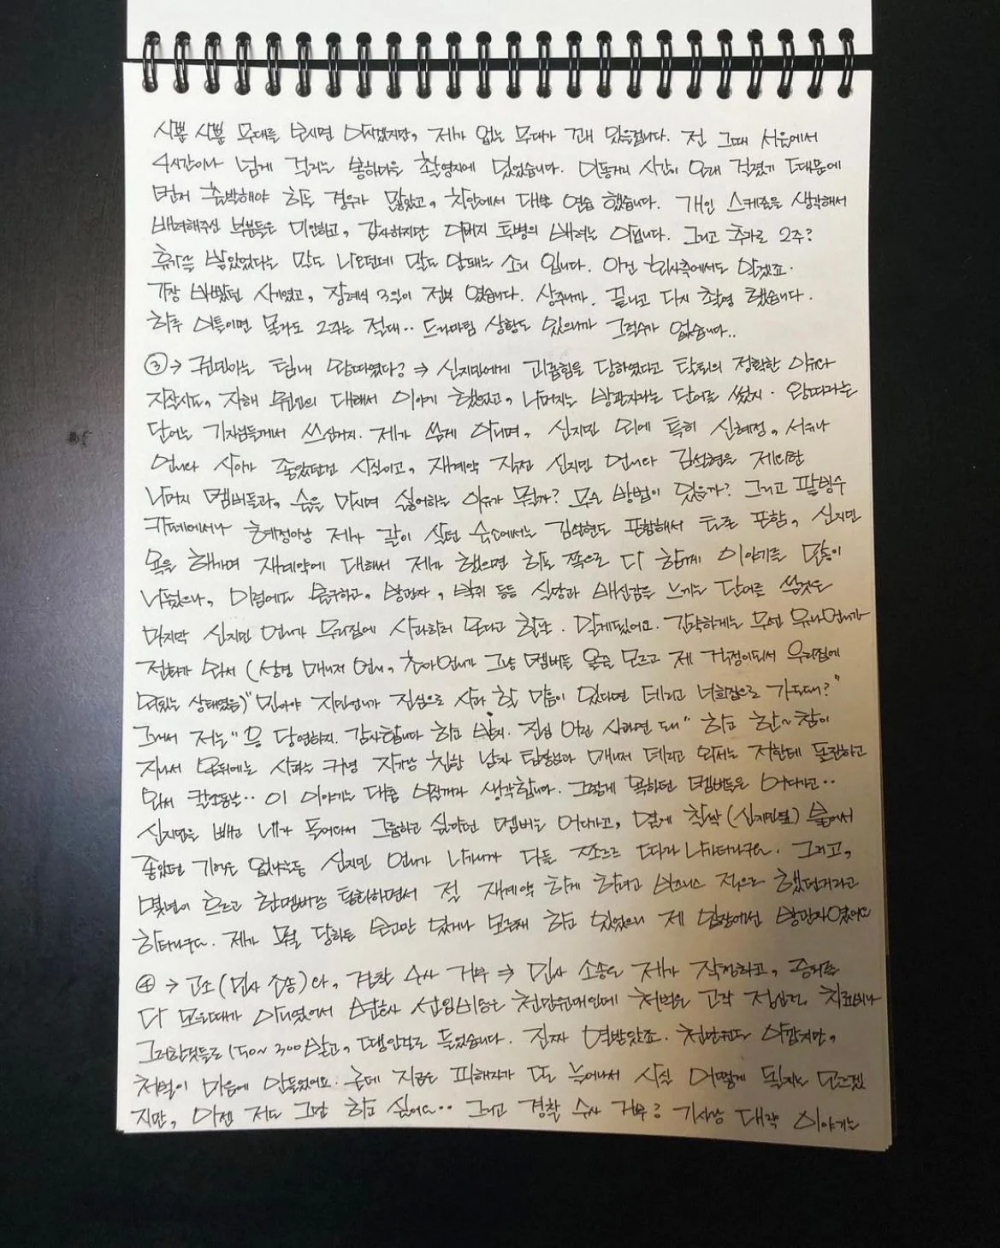 사뿐 사뿐 무대를 보시면 아시겠지만, 제가 없는 무대가 꽤 있을겁니다. 전 그때 서울에서
4시간이나 넘게 걸리는 봉하마을 촬영지에 있었습니다. 이동거리 시간이 오래 걸렸기 때문에
먼저 숙박해야 하는 경우가 많았고, 차안에서 대본 연습 했습니다. 개인 스케줄을 생각해서
배려해주신 부분들은 미안하고, 감사하지만 아버지 투병의 배려는 아닙니다. 그리고 추가로 2주?
휴가를 받았었다는 말도 나오던데 말도 안돼는 소리 입니다. 이건 회사측에서도 알겠죠.
가장 바빴던 시기였고, 장례식 3일이 전부 였습니다. 상주니까. 끝나고 다시 촬영 했습니다.
하루 이틀이면 몰라도 2주는 절대.. 드라마팀 상황도 있으니까 그럴수가 없습니다..
③ → 권민아는 팀내 왕따였다? ⇒ 신지민에게 괴롭힘을 당하였다고 탈퇴의 정확한 이유다
자살시도, 자해 원인의 대해서 이야기 했었고, 나머지는 방관자라는 단어를 썼지. 왕따라는
단어는 기자님들께서 쓰신거지. 제가 쓴게 아니며, 신지민 외에 특히 신혜정, 서유나
언니와 사이가 좋았던건 사실이고, 재계약 직전 신지민 언니와 김설현을 제외한
나머지 멤버들과, 술을 마시며 싫어하는 이유가 뭘까? 무슨 방법이 있을까? 그리고 팥빙수
카페에서나 혜정이랑 제가 같이 살던 숙소에서는 김설현도 포함해서 토론 포함, 신지민
욕을 해가며 재계약에 대해서 제가 했으면 하는 쪽으로 다 함께 이야기를 많이
나눴으나, 이럼에도 불구하고, 방관자, 박쥐 등등 실망과 배신감을 느끼는 단어를 쓴것은
마지막 신지민 언니가 우리집에 사과하러 온다고 할때. 알게됐어요. 간략하게는 우선 유나언니가
전화가 와서 (성경 매니저 언니, 초아언니가 그날 멤버들 올줄 모르고 제 걱정이되서 우리집에
와있는 상태였음) "민아야 지민언니가 진심으로 사과 할 마음이 있다면 데리고 너희집으로 가도돼?"
그래서 저는 "응 당연하지. 감사합니다 하고 받지. 진심 어린 사과면 돼" 하고 한~참이
지나서 온뒤에는 사과는 커녕 자기랑 친한 남자 팀장님과 매니저 데리고 와서는 저한테 돌진하고
와서 칼소동부.. 이 이야기는 대충 아실거라 생각합니다. 그렇게 욕하던 멤버들은 어디가고..
신지민을 빼고 내가 들어와서 그룹하고 싶다던 멤버는 어디가고, 옆에 찰싹 (신지민옆) 붙어서
좋았던 기억은 없냐는둥 신지민 언니가 나가니까 다들 쪼르르 따라 나가더라구요. 그리고,
몇년이 흐르고 한멤버랑 통화하면서 절 재계약 하게 하려고 비즈니스 적으로 했던거라고
하더라구요. 제가 뭘 당하든 보고만 있거나 모른채 하고 있었으니 제 입장에선 방관자였어요
④ → 고소 (민사 소송)와, 경찰 수사 거부 ⇒ 민사 소송도 제가 작정하고, 증거를
다 모은때가 아니였어서 변호사 선임비용은 천만원대인데 처벌은 고작 정신적, 치료비나
그러한것들로 150~300이랬고, 땡인걸로 들었습니다. 진짜 열받았죠. 천만원도 아깝지만,
처벌이 마음에 안들었어요. 근데 지금은 피해자가 또 늘어나서 사실 어떻게 될지는 모르겠
지만, 이젠 저도 그만 하고 싶어요.. 그리고 경찰 수사 거부? 기사랑 대략 이야기는